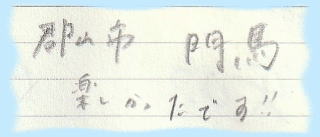 郡山市 門馬
楽しかったです!!